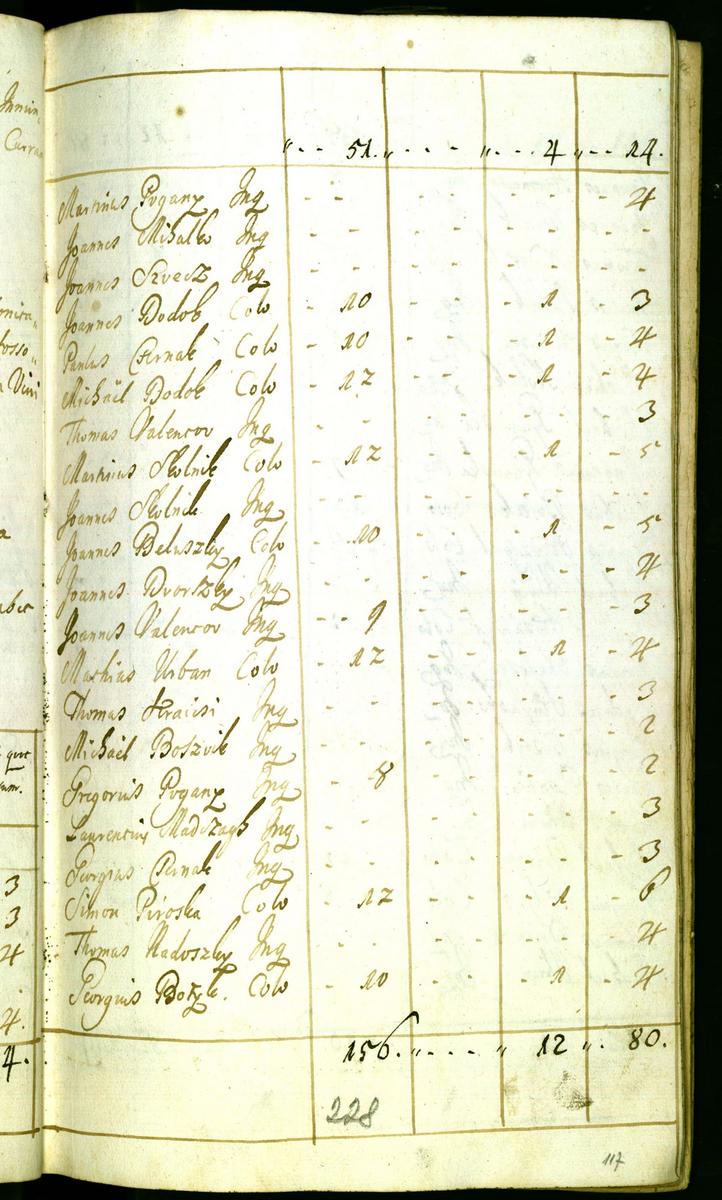 „ - - 51. „ - - - „ - - - 4 „ - - 14.
Martinus Pogany Inq - - - - - - - 4
Joannes Mihalko Inq - - - - - - - -
Joannes Svecz Inq - - - - - - - -
Joannes Dodok Colo - 10 - - - 1 - 3
Paulus Csernak Colo - 10 - - - 1 - 4
Michaël Dodok Colo - 12 - - - 1 - 4
Thomas Valencov Inq - - - - - - - 3
Martinus Skolnik Colo - 12 - - - 1 - 5
Joannes Skolnik Inq - - - - - - - -
Joannes Beluszky Colo - 10 - - - 1 - 5
Joannes Dvorszky Inq - - - - - - - 4
Joannes Valencov Inq - - 9 - - - - 3
Mathias Urban Colo - 12 - - - 1 - 4
Thomas Inq - - - - - - - 3
Michaël Boszvik Inq - - - - - - - 2
Gregorius Pogany Inq - 8 - - - - - 2
Laurentius Inq - - - - - - - 3
Georgius Csernak Inq - - - - - - - 3
Simon Piroska Colo - 12 - - - 1 - 6
Thomas Nadoszky Inq - - - - - - - 4
Georgius Colo - 10 - - - 1 - 4
156. „ - - - „ 12 „. 80.
228
117
3
3
4
4.
4.